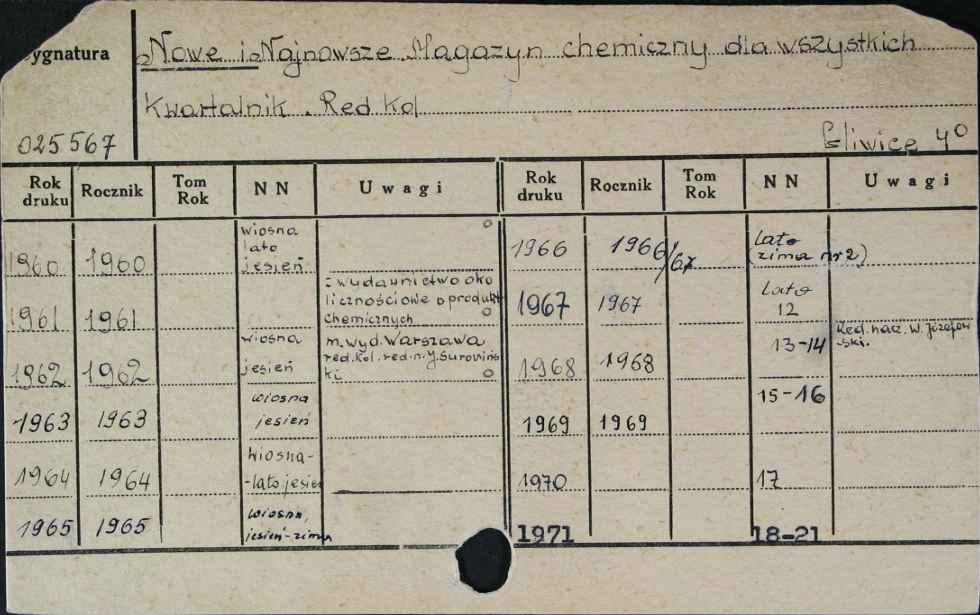 ygnatura
Nowe i Najnowsze Magazyn chemiczny dla wszystkich
Kwartalnik. Red. Kol
025567
Gliwice 4°
Rok druku Rocznik Tom Rok NN Uwagi Rok druku Rocznik Tom Rok NN Uwagi
1960 1960 wiosna
lato
jesień
1961 1961 z wydawnictwo oko
licznościowe o produkt
chemicznych
1962 1962 wiosna
jesień
m. wyd. Warszawa
red. kol. red. n. J. Surowińs
ki
1963 1963 wiosna
jesień
1964 1964 Wiosna-
-lato, jesień
1965 1965 wiosna,
jesień-zima
1966 1966/67 Lato
(zima nr 2)
1967 1967 Lato
12
1968 1968 13-14 Red. nacz. W. Józefow
ski.
1969 1969 15-16
1970 17
1971 18-21